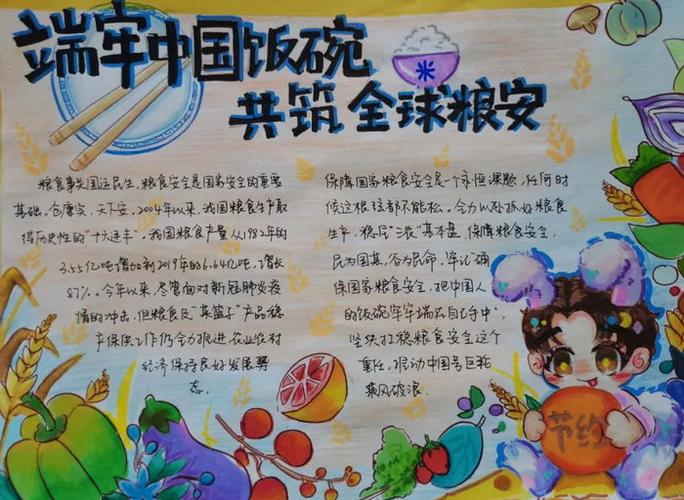 端牢中国饭碗
米
共筑全球粮安
粮食事关国运民生，粮食安全是国家安全的重要
基础。仓廪实，天下安。2004年以来，我国粮食生产取
得历史性的"十六连丰"，我国粮食产量从1982年的
3.55亿吨增加到2019年的6.64亿吨，增长
87%。今年以来，尽管面对新冠肺炎疫
情的冲击，但粮食及"菜篮子"产品稳
产保供工作仍全力推进，农业农村
经济保持良好发展势
态。
保障国家粮食安全是一个永恒课题，任何时
候这根弦都不能松。全力以赴抓好粮食
生产，稳"三农"基本盘，保障粮食安全，
民为国基，谷为民命，牢记确
保国家粮食安全，把中国人
的饭碗牢牢端在自己手中，
坚决扛稳粮食安全这个
责任，推动中国号巨轮
乘风破浪.
节约